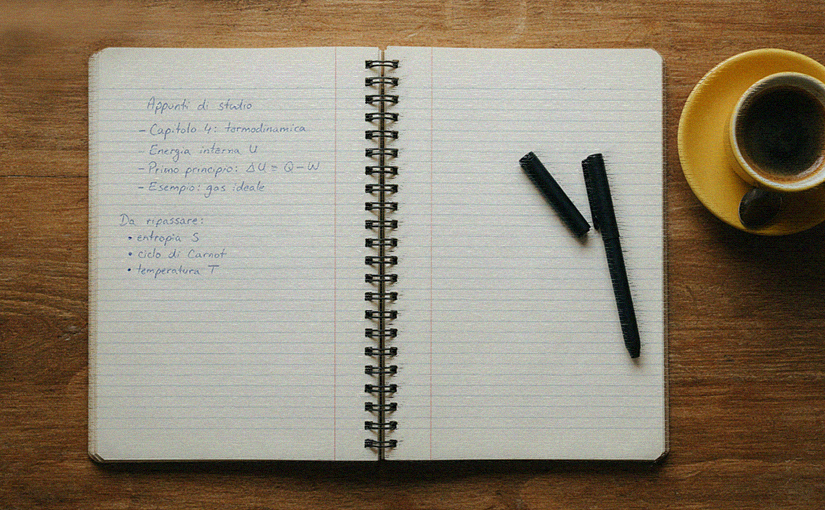 Appunti di studio
- Capitolo 4: termodinamica
- Energia interna U
- Primo principio: ΔU = Q - W
- Esempio: gas ideale
Da ripassare:
• entropia S
• ciclo di Carnot
• temperatura T